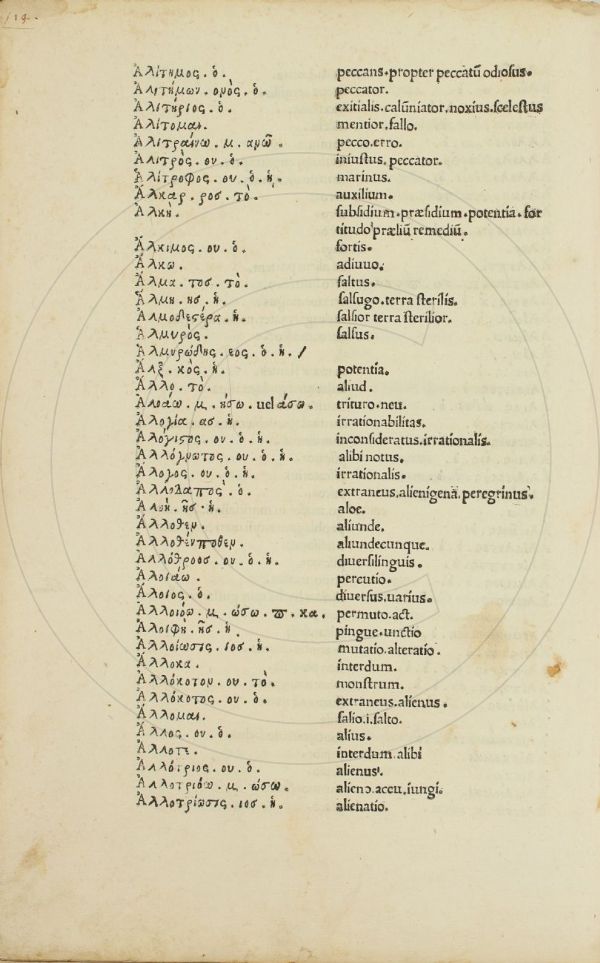 14.
Ἀλίτημος.ὁ. peccans.propter peccatū odiosus.
Ἀλιτήμων.ονὸς.ὁ. peccator.
Ἀλιτήριος.ὁ. exitialis.calūniator.noxius.scelestus
Ἀλίτομαι. mentior.fallo.
Ἀλιτραίνω.μ.ανῶ. pecco.erro.
Ἀλιτρὸς.ου.ὁ. iniustus, peccator.
Ἁλίτροφος.ου.ὁ.ἡ. marinus.
Ἄλκαρ.ρος.τὸ. auxilium.
Ἀλκὴ. subsidium.præsidium.potentia.for
titudo præliū remediū.
Ἄλκιμος.ου.ὁ. fortis.
Ἄλκω. adiuuo.
Ἅλμα.τος.τὸ. saltus.
Ἅλμη.ης.ἡ. salsugo.terra sterilis.
Ἁλμοδεϛέρα.ἡ. salsior terra sterilior.
Ἁλμυρὸς. salsus.
Ἁλμυρώδης.εος.ὁ.ἡ./
Ἄλξ.κὸς.ἡ. potentia.
Ἄλλο.τὸ. aliud.
Ἀλοάω.μ.ήσω.uel άσω. trituro.neu.
Ἀλογία.ας.ἡ. irrationabilitas.
Ἀλόγιϛος.ου.ὁ.ἡ. inconsideratus.irrationalis.
Ἀλλόγνωτος.ου.ὁ.ἡ. alibi notus.
Ἄλογος.ου.ὁ.ἡ. irrationalis.
Ἀλλοδαπὸς.ὁ. extraneus,alienigena, peregrinus.
Ἀλοὴ.ῆς.ἡ. aloe.
Ἄλλοθεν. aliunde.
Ἀλλοθένποθεν. aliundecunque.
Ἀλλόθροος.ου.ὁ.ἡ. diuersilinguis.
Ἀλοιάω. percutio.
Ἄλοιος.ὁ. diuersus.uarius.
Ἀλλοιόω.μ.ώσω.ϖ.κα. permuto.act.
Ἀλοιφὴ.ῆς.ἡ. pingue.unctio
Ἀλλοίωσις.ιος.ἡ. mutatio.alteratio.
Ἄλλοκα. interdum.
Ἀλλόκοτον.ου.τὸ. monstrum.
Ἀλλόκοτος.ου.ὁ. extraneus.alienus.
Ἅλλομαι. salio.i.salto.
Ἄλλος.ου.ὁ. alius.
Ἄλλοτε. interdum.alibi
Ἀλλότριος.ου.ὁ. alienus.
Ἀλλοτριόω.μ.ώσω. alieno.accu.iungi.
Ἀλλοτρίωσις.ιος.ἡ. alienatio.